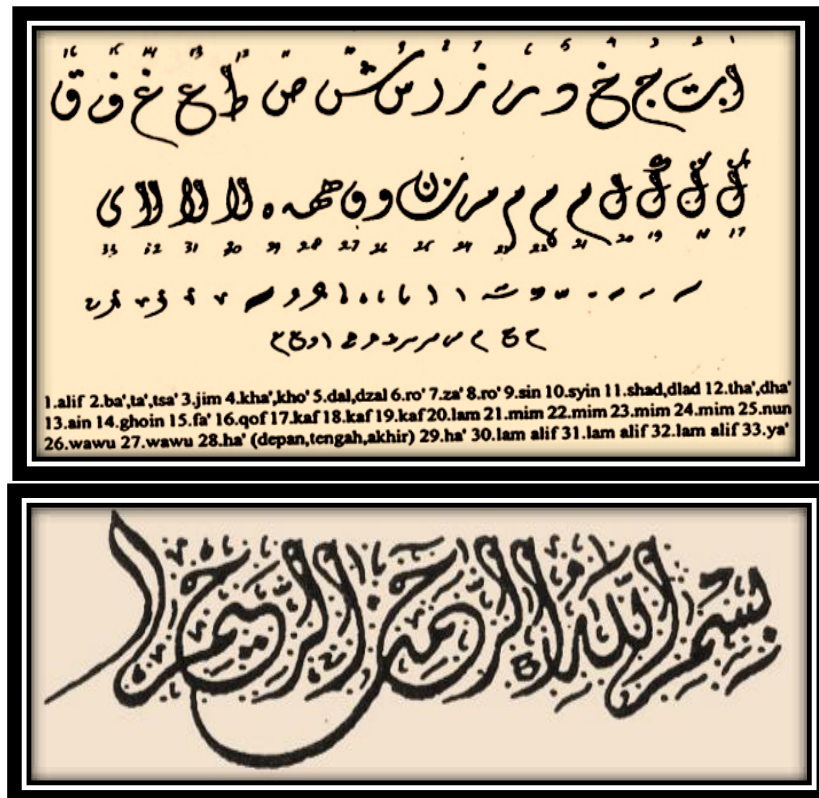 1 2 3 4 5 6 7 8 9 10 11 12 13 14 15 16
ا بت ج خ د ر ز ر س ش ص ط ع غ ف ق
ك ك ك ل م م م م ن و و ههه ه لا لا لا ى
17 18 19 20 21 22 23 24 25 26 27 28 29 30 31 32 33
1.alif 2.ba',ta',tsa' 3.jim 4.kha',kho' 5.dal,dzal 6.ro' 7.za' 8.ro' 9.sin 10.syin 11.shad,dlad 12.tha',dha'
13.ain 14.ghoin 15.fa' 16.qof 17.kaf 18.kaf 19.kaf 20.lam 21.mim 22.mim 23.mim 24.mim 25.nun
26.wawu 27.wawu 28.ha' (depan,tengah,akhir) 29.ha' 30.lam alif 31.lam alif 32.lam alif 33.ya'
بسم الله الرحمن الرحيم